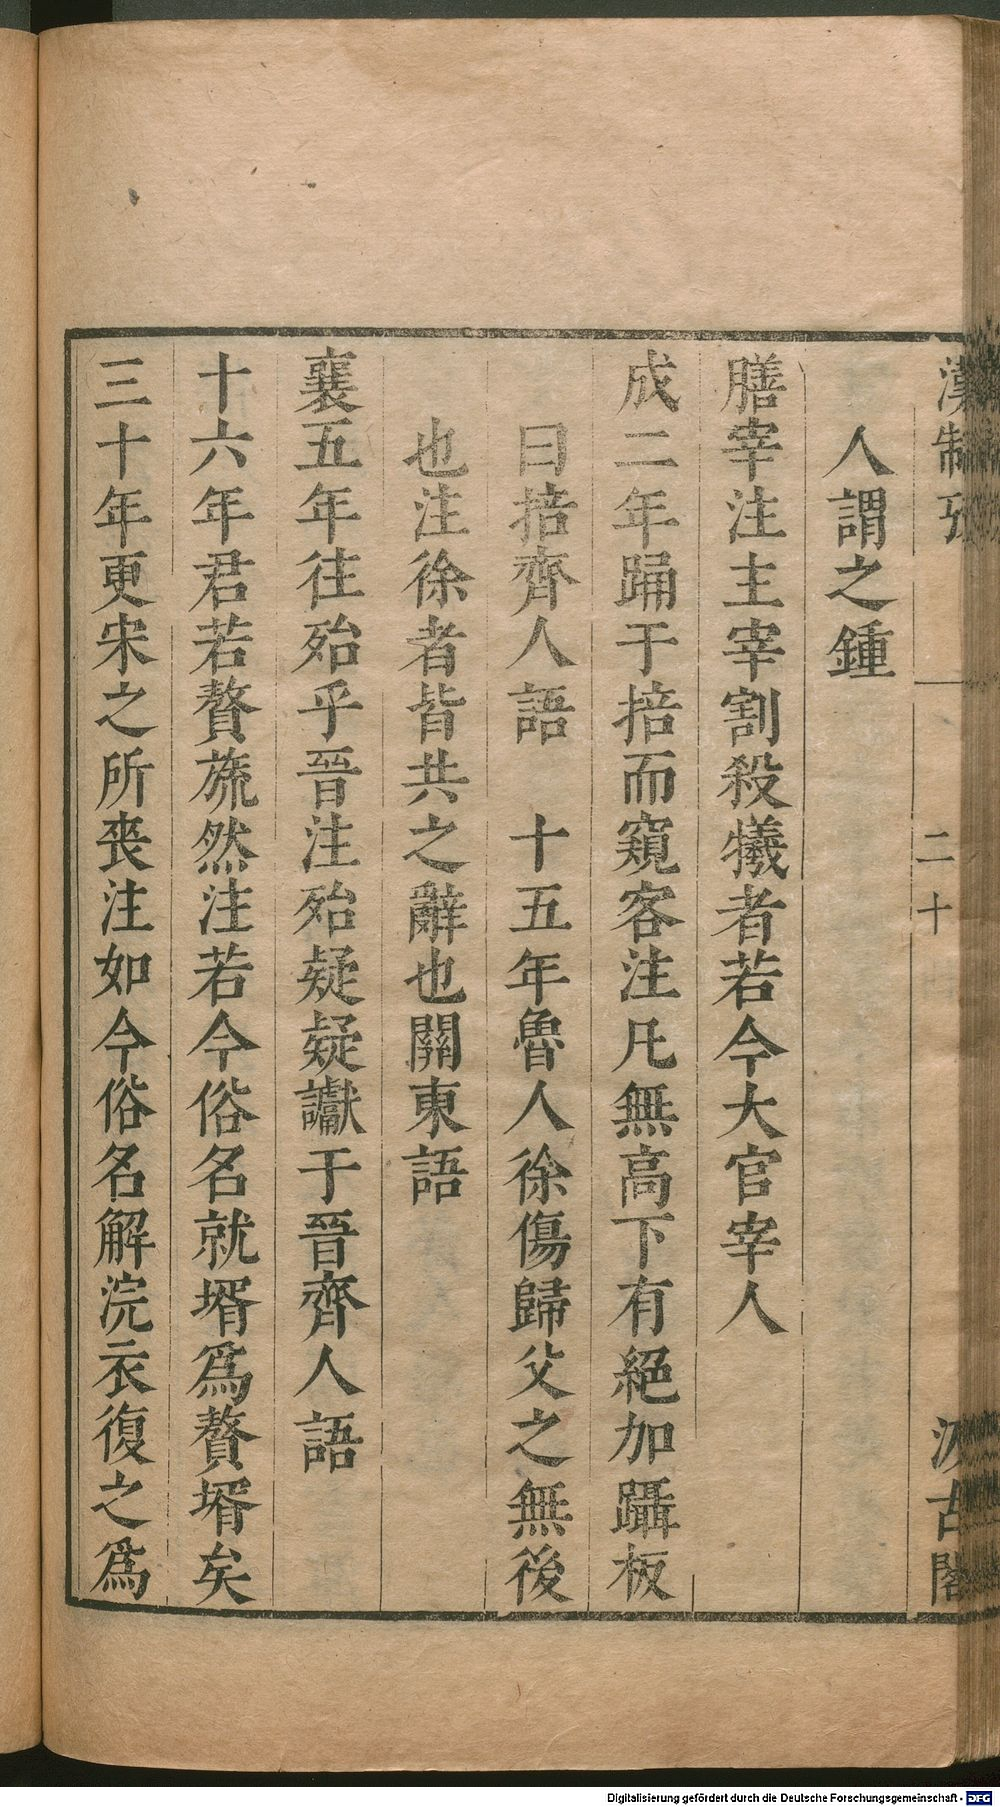 漢制攷
二十
汲古閣
人謂之鍾
膳宰注主宰割殺犧者若今大官宰人
成二年踊于掊而窺客注凡無高下有絕加躡板
曰掊齊人語　十五年魯人徐傷歸父之無後
也注徐者皆共之辭也關東語
襄五年往殆乎晉注殆疑疑讞于晉齊人語
十六年君若贅旒然注若今俗名就壻爲贅壻矣
三十年更宋之所喪注如今俗名解浣衣復之爲
Digitalisierung gefördert durch die Deutsche Forschungsgemeinschaft - DFG